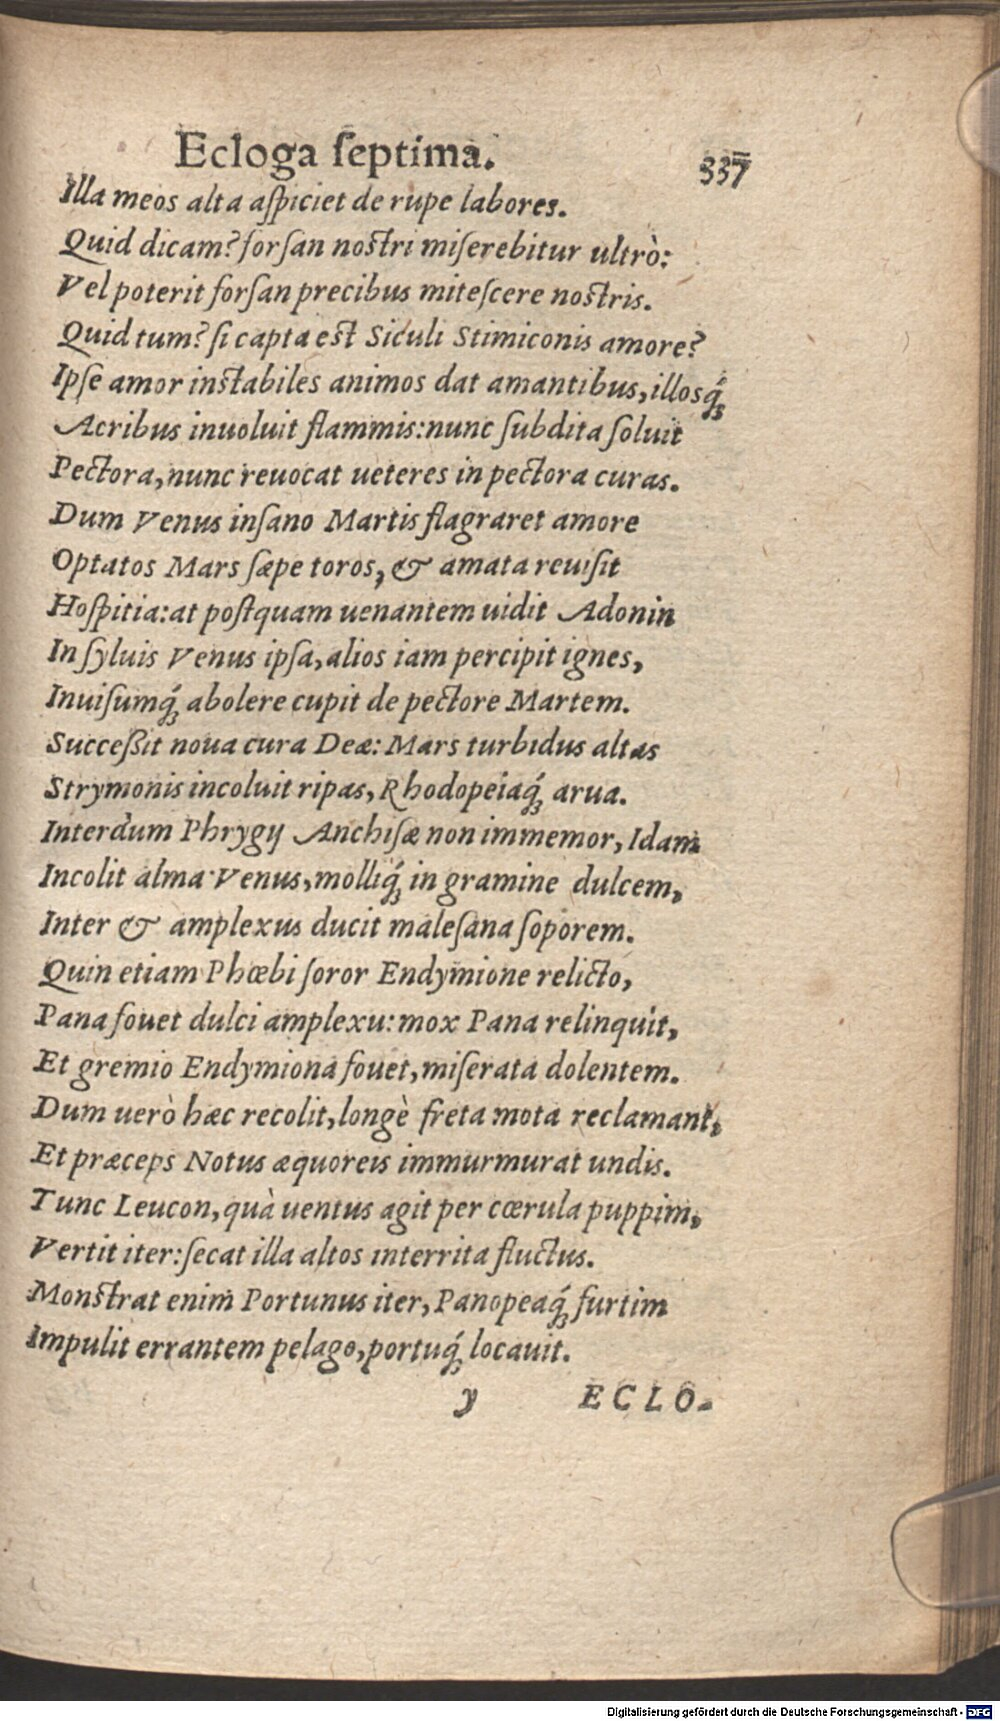 Ecloga ſeptima. 337
Illa meos alta aſpiciet de rupe labores.
Quid dicam? forſan noſtri miſerebitur ultrò:
Vel poterit forſan precibus miteſcere noſtris.
Quid tum? ſi capta eſt Siculi Stimiconis amore?
Ipſe amor inſtabiles animos dat amantibus, illosq́;
Acribus inuoluit flammis: nunc ſubdita ſoluit
Pectora, nunc reuocat ueteres in pectora curas.
Dum Venus inſano Martis flagraret amore
Optatos Mars ſæpe toros, & amata reuiſit
Hoſpitia: at poſtquam uenantem uidit Adonin
In ſyluis Venus ipſa, alios iam percipit ignes,
Inuiſumq́; abolere cupit de pectore Martem.
Succeßit noua cura Deæ: Mars turbidus altas
Strymonis incoluit ripas, Rhodopeiaq́; arua.
Interdum Phrygij Anchiſæ non immemor, Idam
Incolit alma Venus, molliq́; in gramine dulcem,
Inter & amplexus ducit maleſana ſoporem.
Quin etiam Phœbi ſoror Endymione relicto,
Pana fouet dulci amplexu: mox Pana relinquit,
Et gremio Endymiona fouet, miſerata dolentem.
Dum uerò hæc recolit, longè freta mota reclamant,
Et præceps Notus æquoreis immurmurat undis.
Tunc Leucon, quà uentus agit per cœrula puppim,
Vertit iter: ſecat illa altos interrita fluctus.
Monſtrat enim Portunus iter, Panopeaq́; furtim
Impulit errantem pelago, portuq́; locauit.
y ECLO-
Digitalisierung gefördert durch die Deutsche Forschungsgemeinschaft - DFG